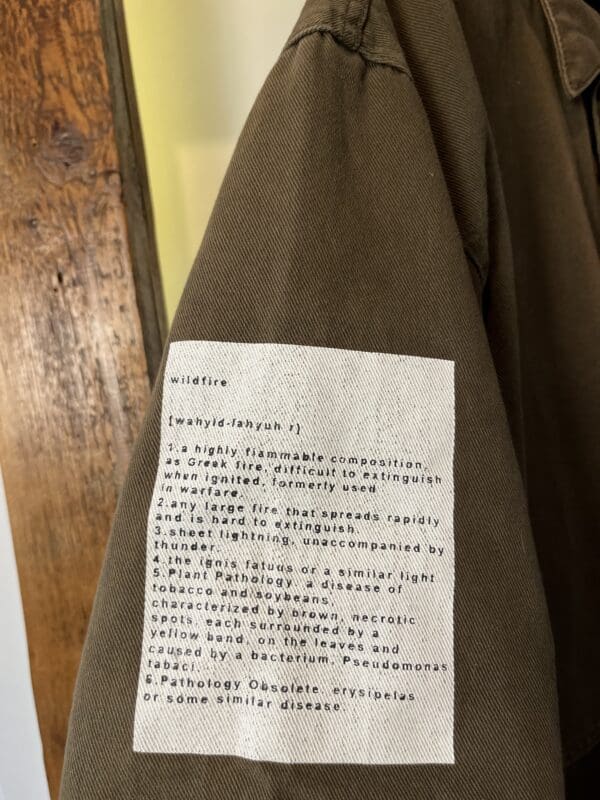 wildfire
[wahyld-fahyuh r]
1.a highly flammable composition,
as Greek fire, difficult to extinguish
when ignited, formerly used
in warfare.
2.any large fire that spreads rapidly
and is hard to extinguish.
3.sheet lightning, unaccompanied by
thunder.
4.the ignis fatuus or a similar light
5.Plant Pathology. a disease of
tobacco and soybeans,
characterized by brown, necrotic
spots, each surrounded by a
yellow band, on the leaves and
caused by a bacterium, Pseudomonas
tabaci.
6.Pathology Obsolete. erysipelas
or some similar disease.